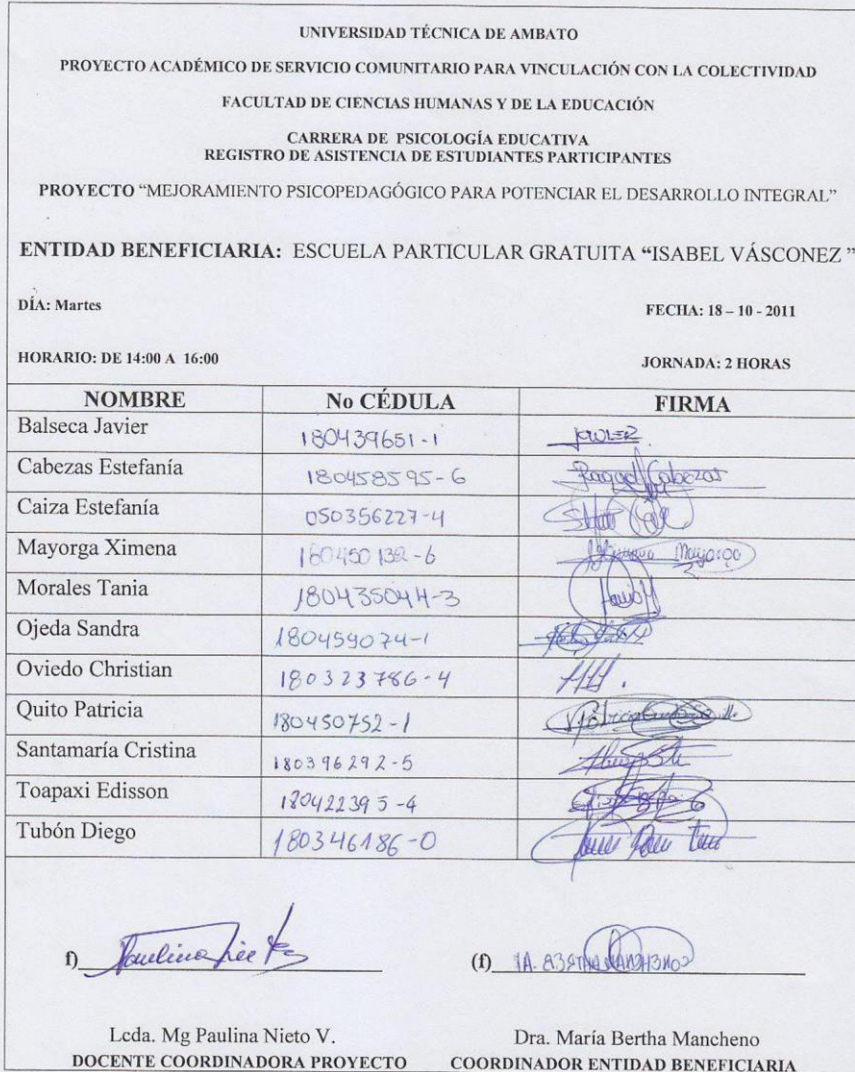 UNIVERSIDAD TÉCNICA DE AMBATO
PROYECTO ACADÉMICO DE SERVICIO COMUNITARIO PARA VINCULACIÓN CON LA COLECTIVIDAD
FACULTAD DE CIENCIAS HUMANAS Y DE LA EDUCACIÓN
CARRERA DE PSICOLOGÍA EDUCATIVA
REGISTRO DE ASISTENCIA DE ESTUDIANTES PARTICIPANTES
PROYECTO “MEJORAMIENTO PSICOPEDAGÓGICO PARA POTENCIAR EL DESARROLLO INTEGRAL”
ENTIDAD BENEFICIARIA: ESCUELA PARTICULAR GRATUITA “ISABEL VÁSCONEZ ”
DÍA: Martes FECHA: 18 – 10 - 2011
HORARIO: DE 14:00 A 16:00 JORNADA: 2 HORAS
NOMBRE No CÉDULA FIRMA
Balseca Javier 180439651-1
Cabezas Estefanía 180458595-6 Raquel Cabezas
Caiza Estefanía 050356227-4
Mayorga Ximena 180450132-6 Mayorga
Morales Tania 180435044-3 Tania M
Ojeda Sandra 180459074-1
Oviedo Christian 180323786-4
Quito Patricia 180450752-1
Santamaría Cristina 180396292-5
Toapaxi Edisson 180422395-4
Tubón Diego 180346186-0
f) Paulina Nieto (f)
Lcda. Mg Paulina Nieto V. Dra. María Bertha Mancheno
DOCENTE COORDINADORA PROYECTO COORDINADOR ENTIDAD BENEFICIARIA